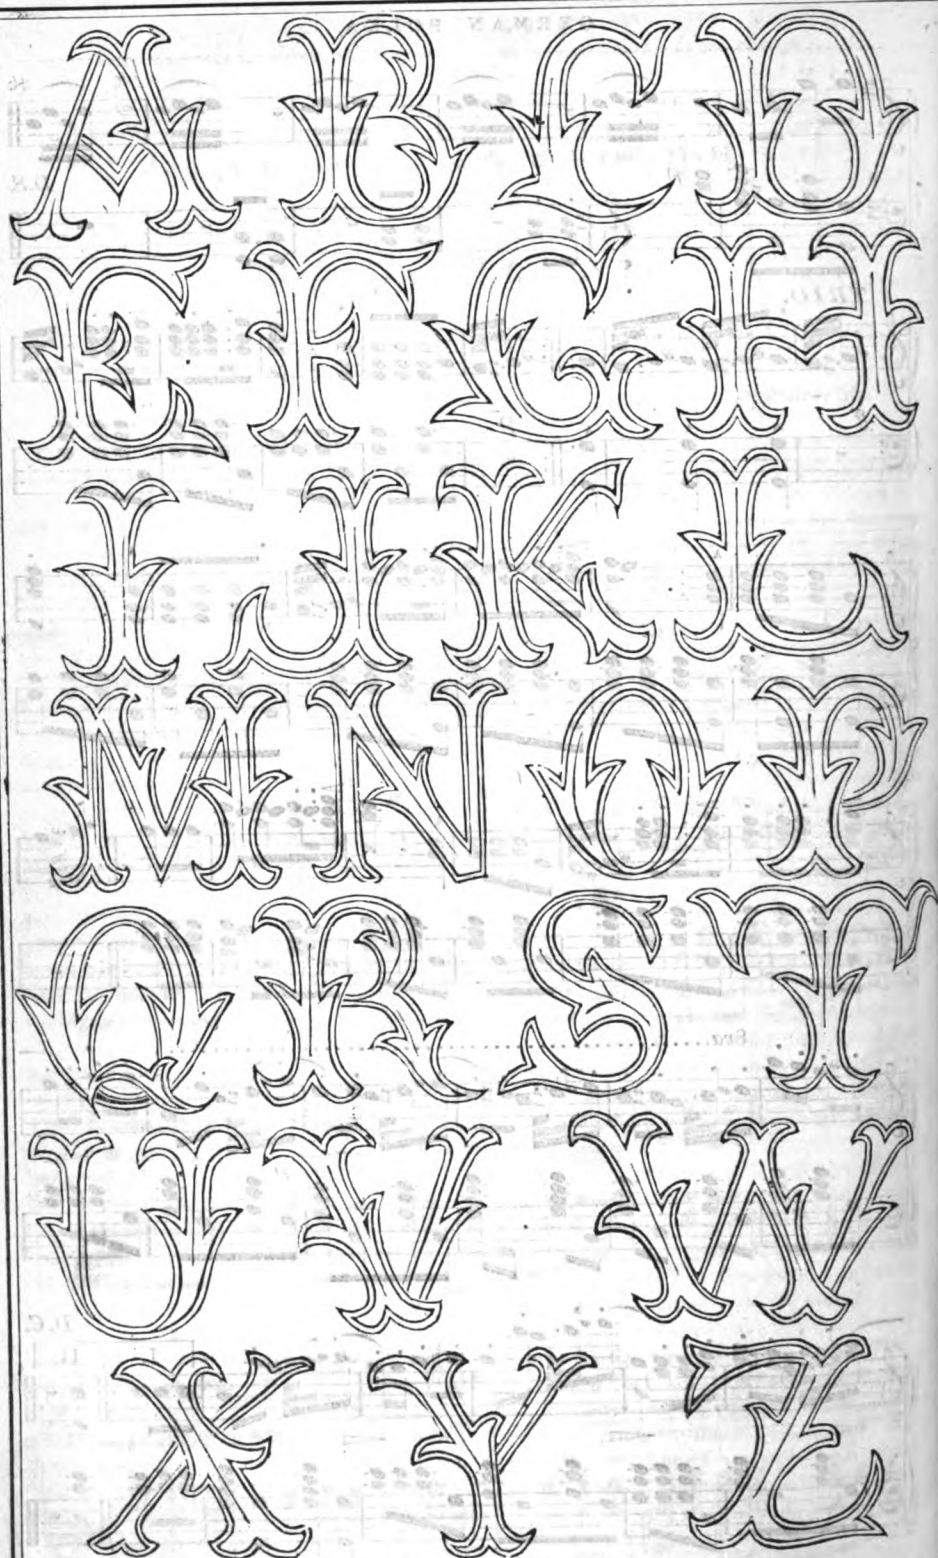 A B C D
E F G H
I J K L
M N O P
Q R S T
U V W
X Y Z